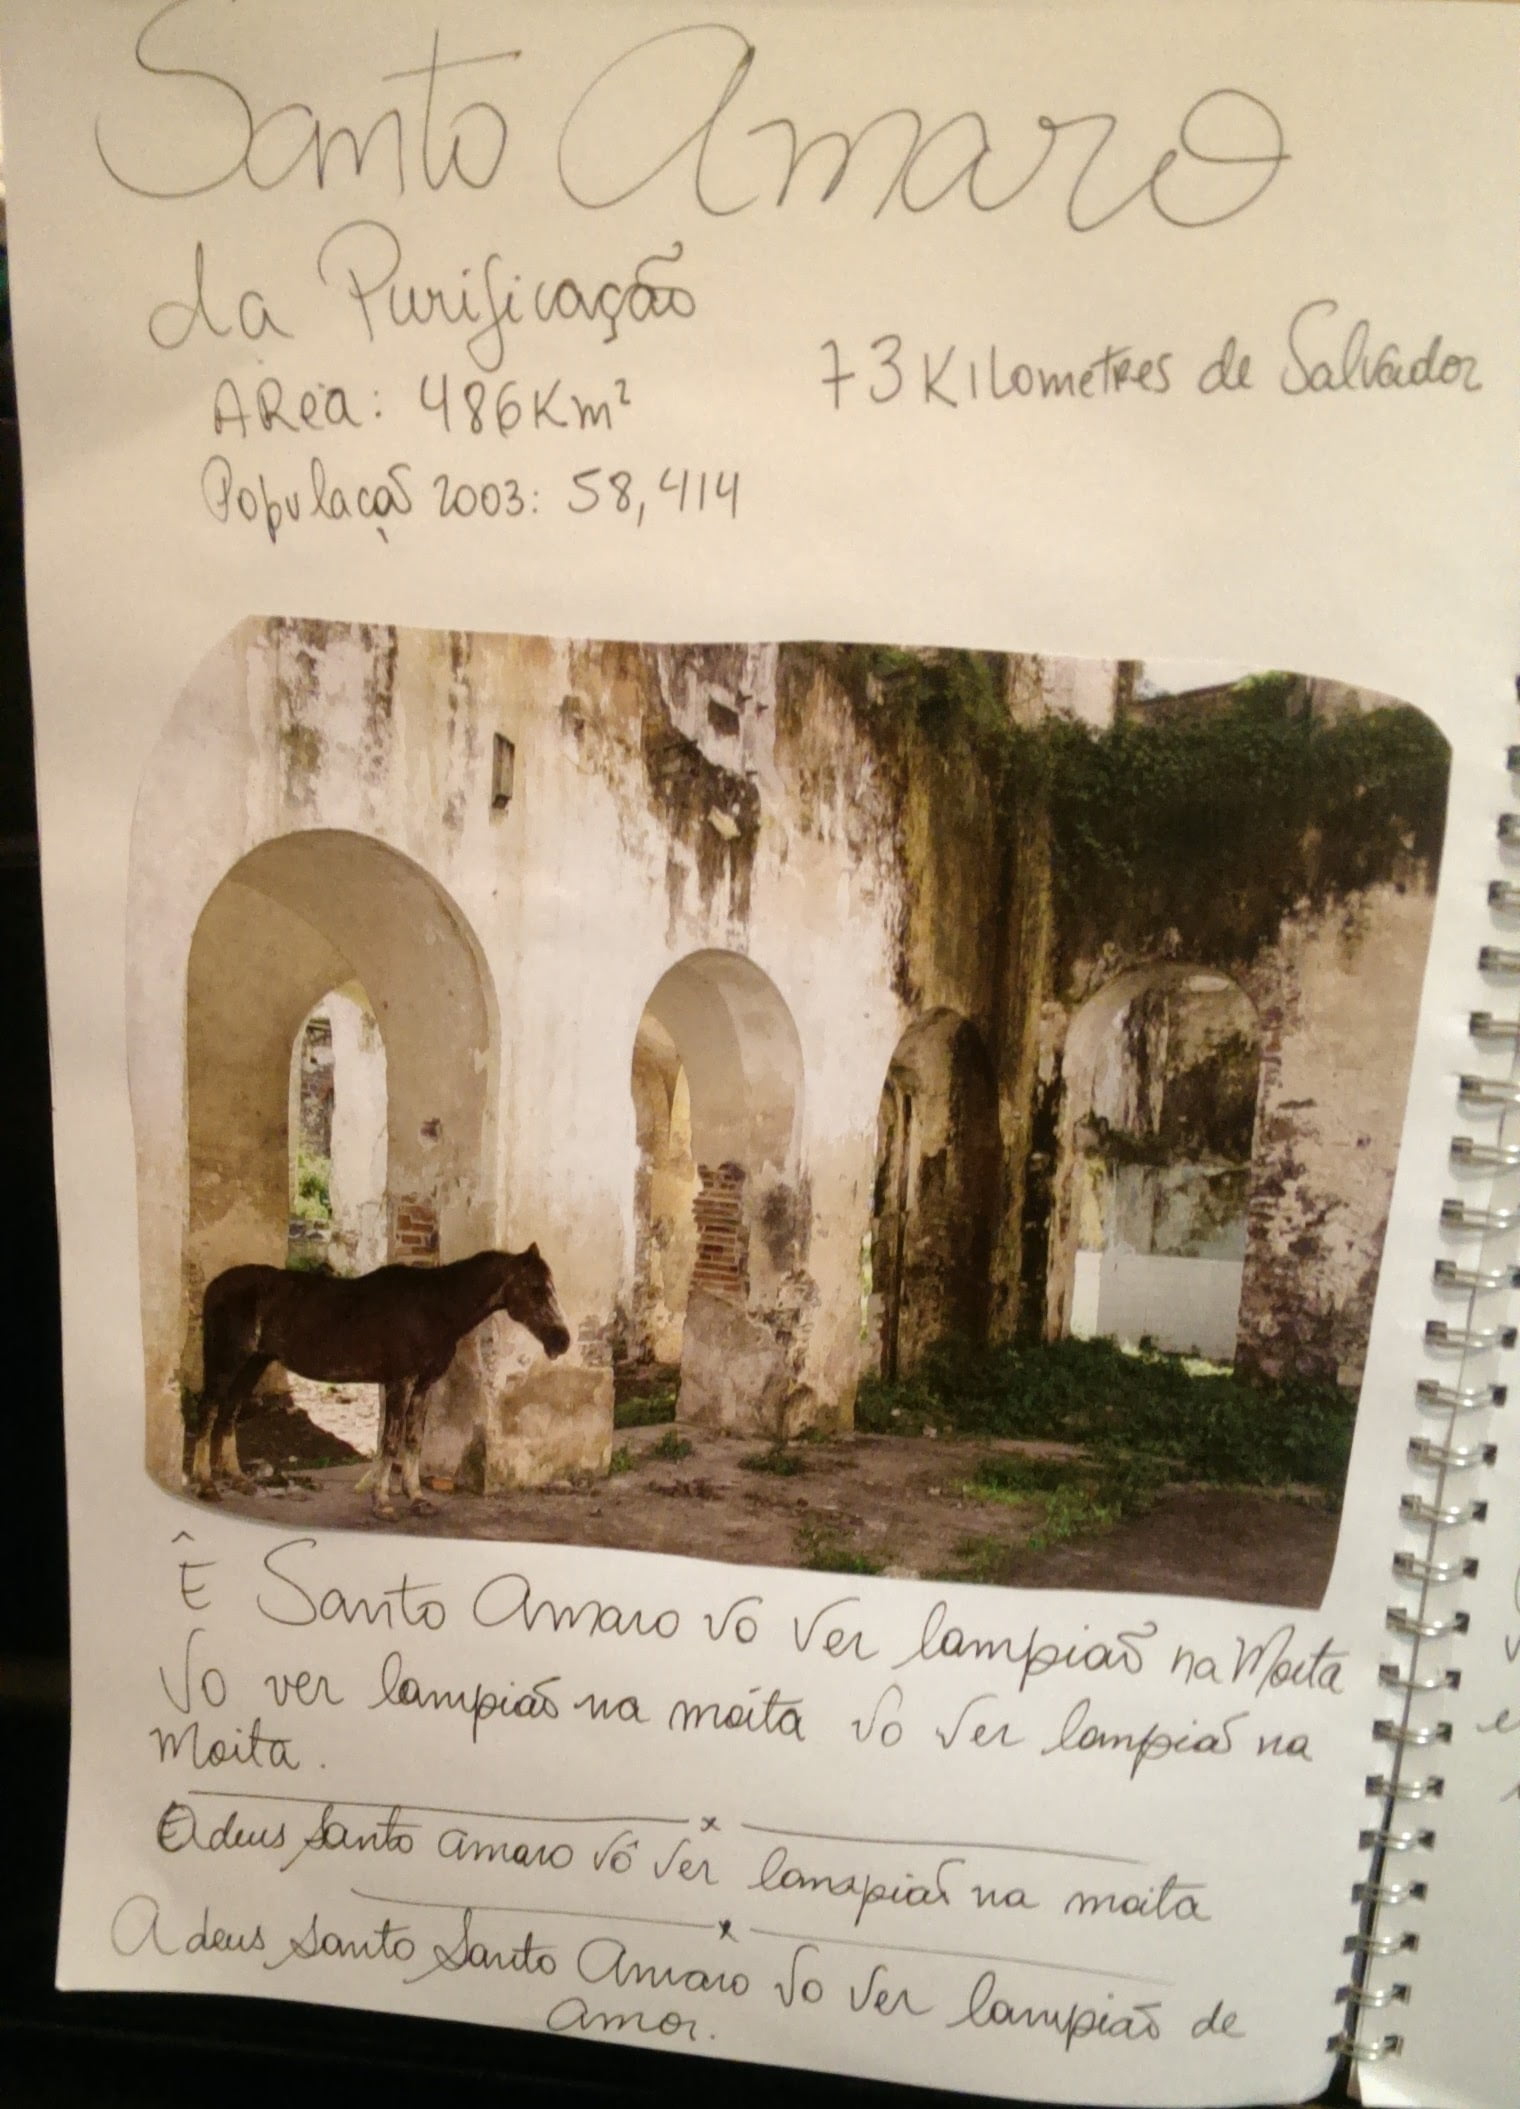 Santo Amaro
da Purificação
73 Kilometres de Salvador
AReá: 486Km²
População 2003: 58,414
Ê Santo Amaro vo ver lampião na Moita
Vo ver lampião na moita vo ver lampião na
Moita.
Adeus Santo Amaro vô ver lampião na moita
Adeus Santo Santo Amaro vo ver lampião de
amor.